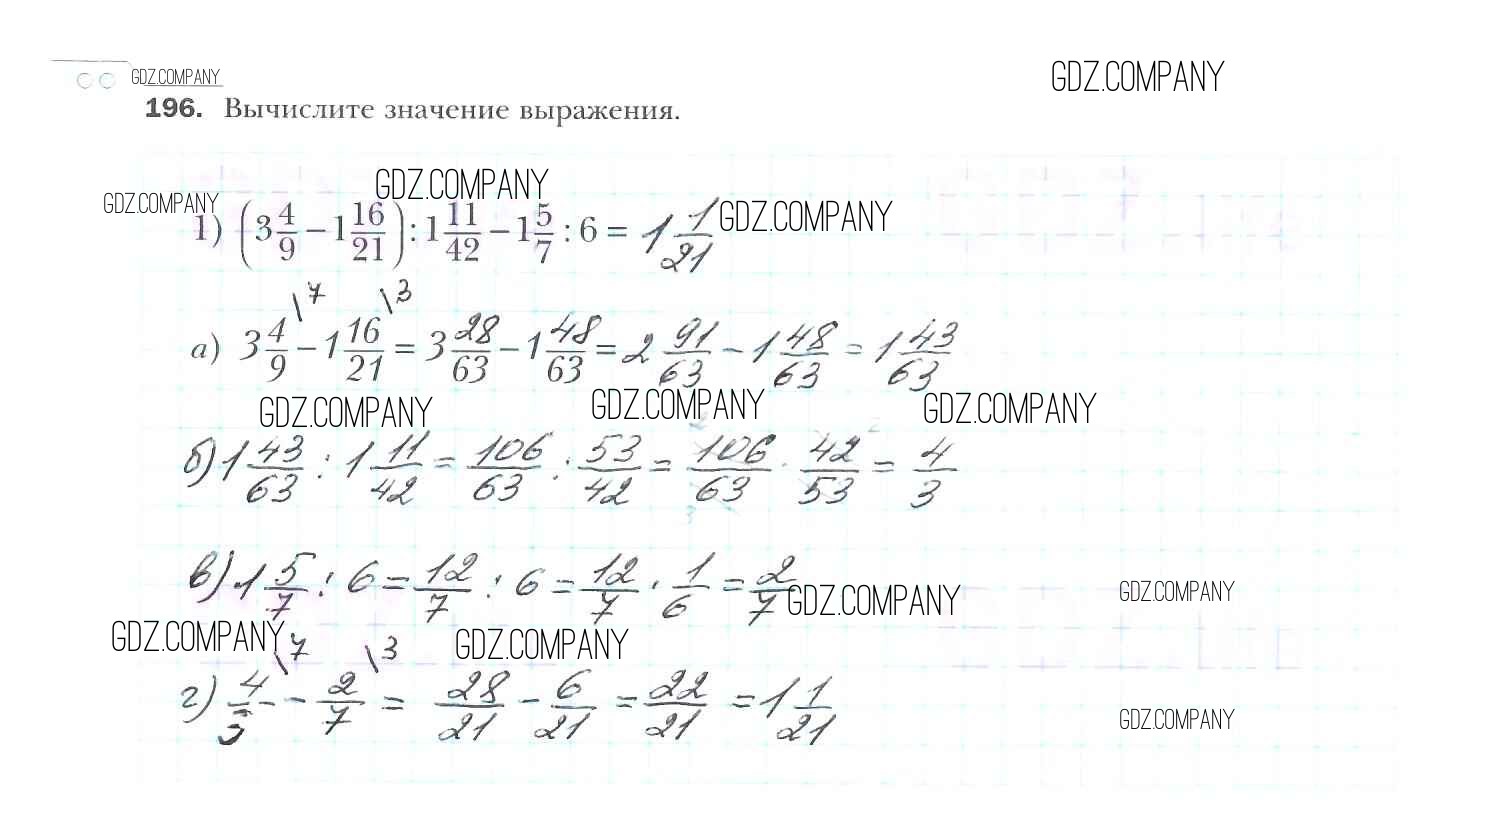 GDZ.COMPANY
GDZ.COMPANY
196. Вычислите значение выражения.
GDZ.COMPANY
GDZ.COMPANY
GDZ.COMPANY
1) (3 4/9 − 1 16/21) : 1 11/42 − 1 5/7 : 6 = 1 1/21
\7 \3
а) 3 4/9 − 1 16/21 = 3 28/63 − 1 48/63 = 2 91/63 − 1 48/63 = 1 43/63
GDZ.COMPANY GDZ.COMPANY GDZ.COMPANY
б) 1 43/63 : 1 11/42 = 106/63 : 53/42 = 106/63 · 42/53 = 4/3
в) 1 5/7 : 6 = 12/7 : 6 = 12/7 · 1/6 = 2/7
GDZ.COMPANY GDZ.COMPANY
GDZ.COMPANY GDZ.COMPANY
\7 \3
г) 4/3 − 2/7 = 28/21 − 6/21 = 22/21 = 1 1/21
GDZ.COMPANY